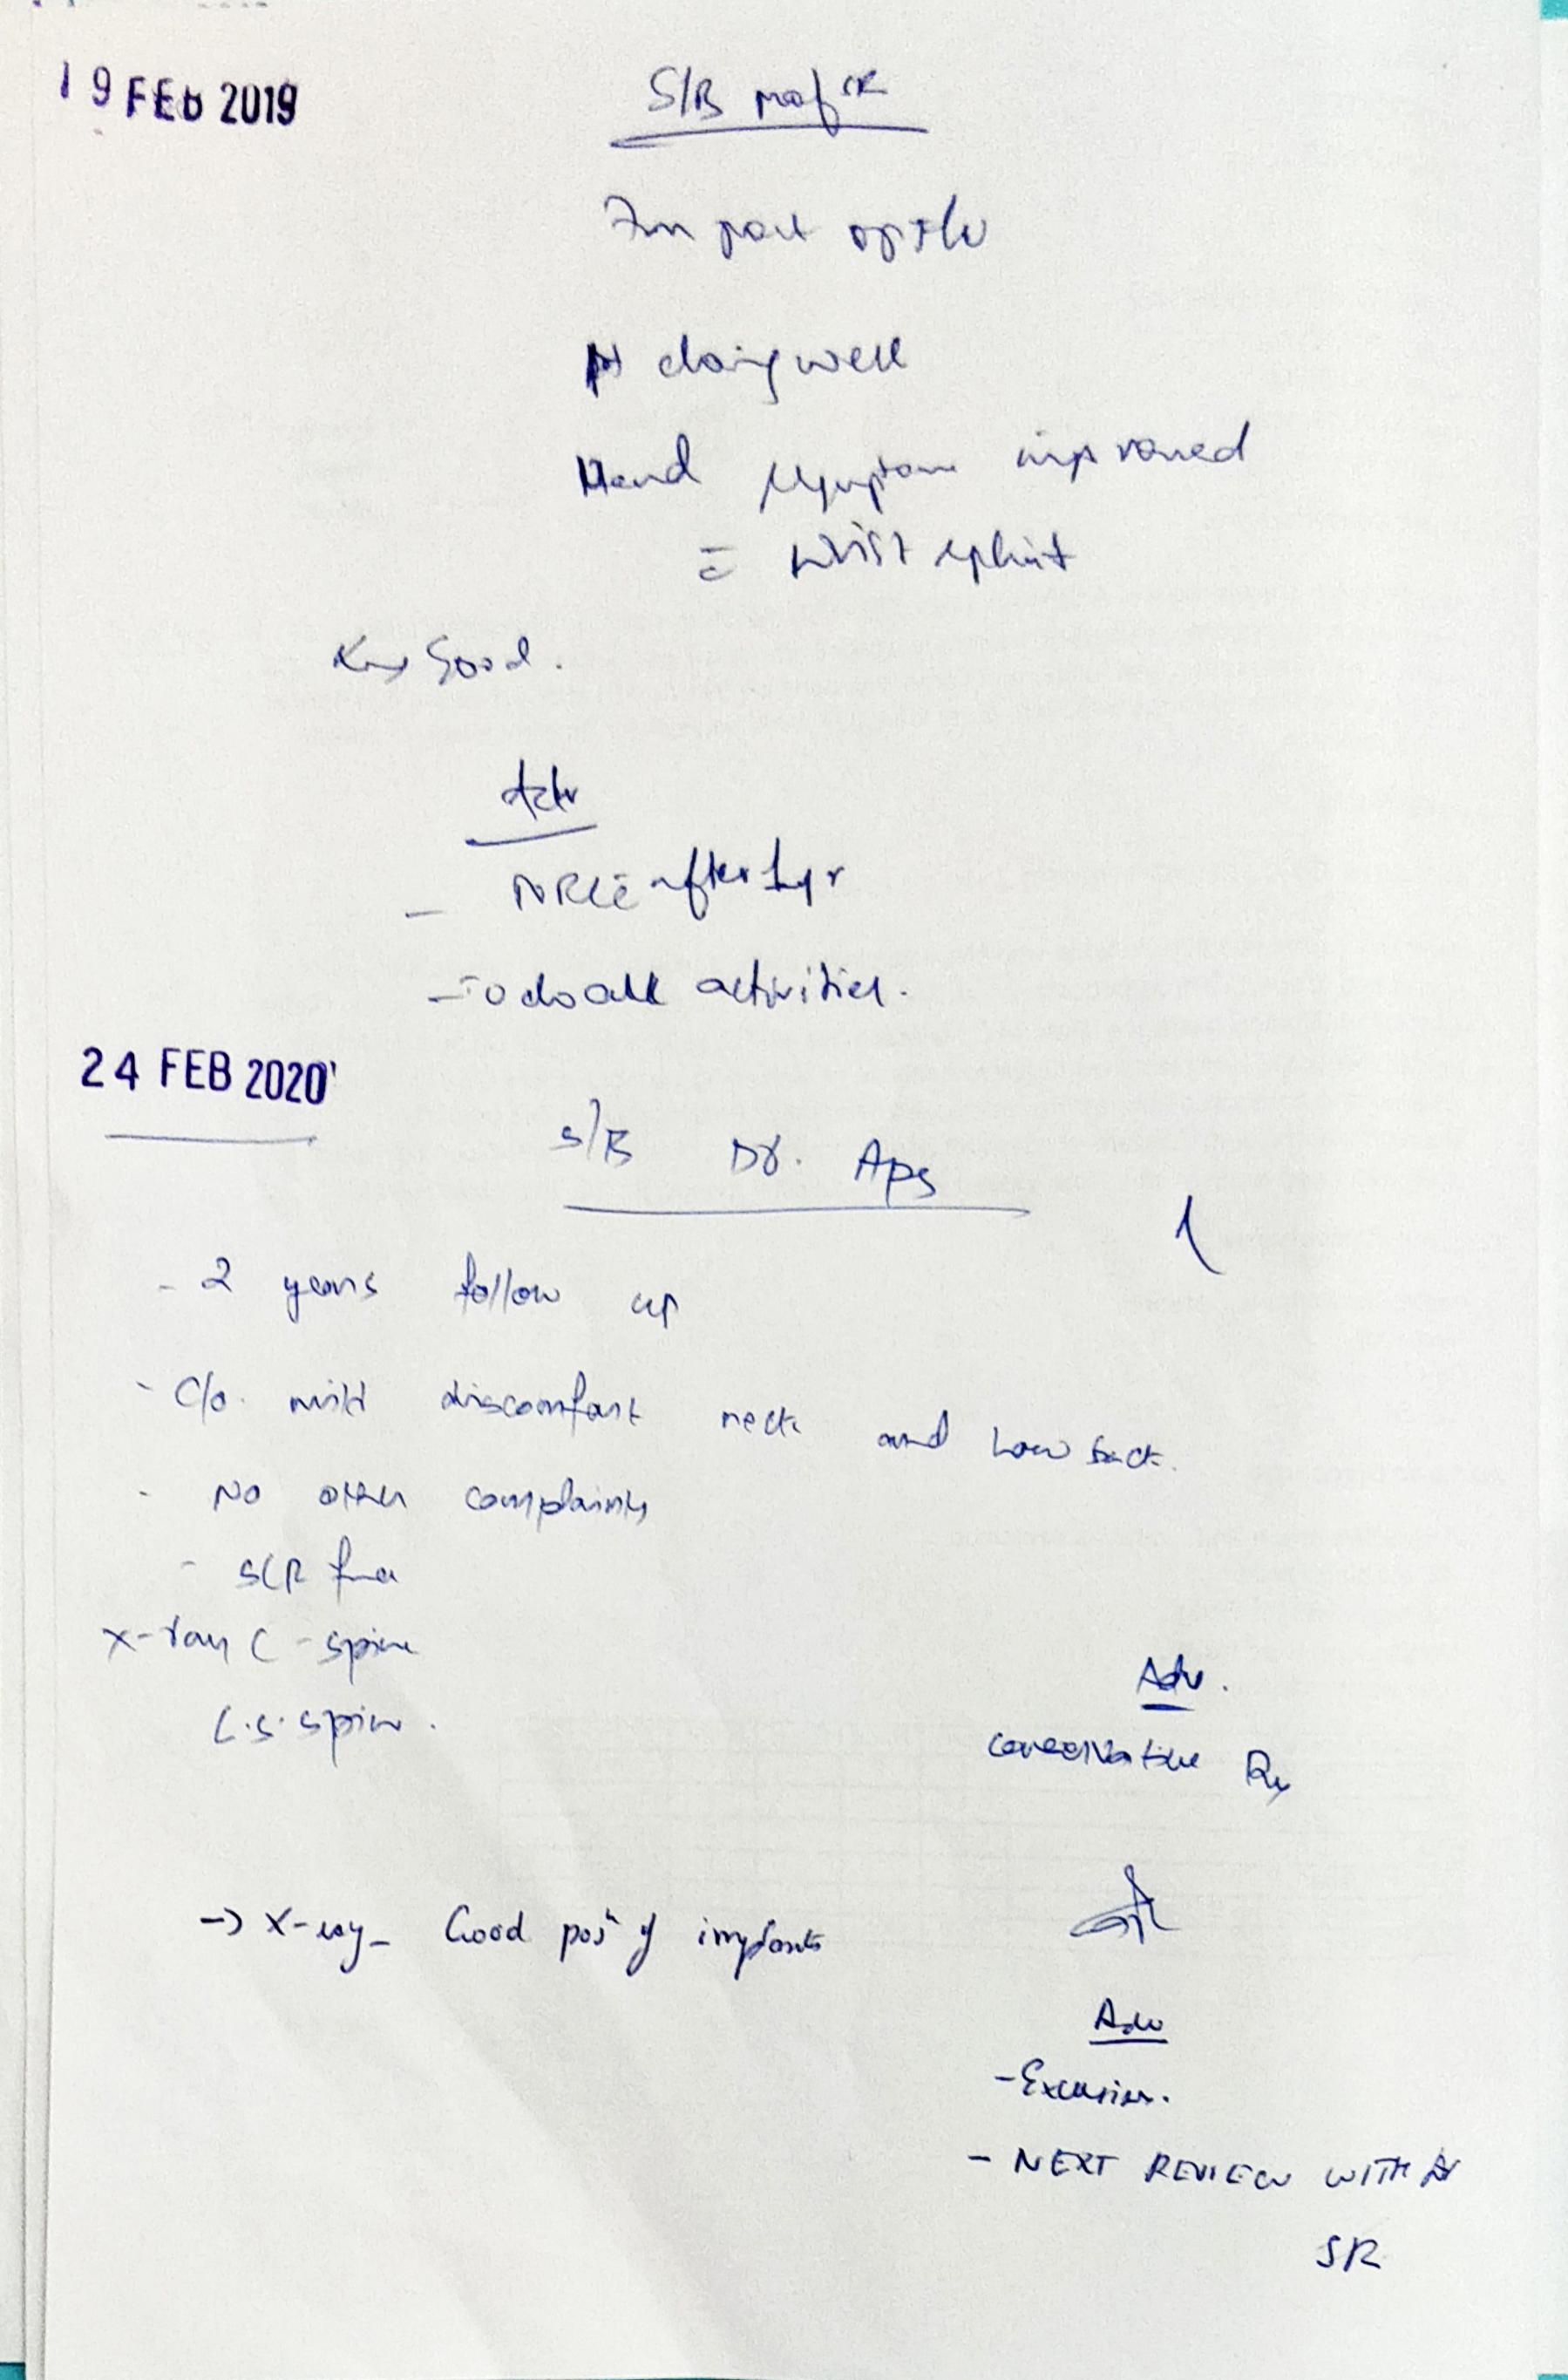 19 FEB 2019
S/B Prof SR
7m post op f/u
Pt doing well
Hand symptoms improved
c̄ wrist splint
X-ray Good.
Adv
- after 1 yr
- To do all activities.
24 FEB 2020
S/B Dr. Aps
- 2 years follow up
- C/o. mild discomfort neck and low back.
- No other complaints
- SLR free
X-ray C-spine
L.S. spine.
Adv.
conservative Rx
-> X-ray - Good posn of implants
Adv
- Exercises.
- NEXT REVIEW WITH Dr
SR